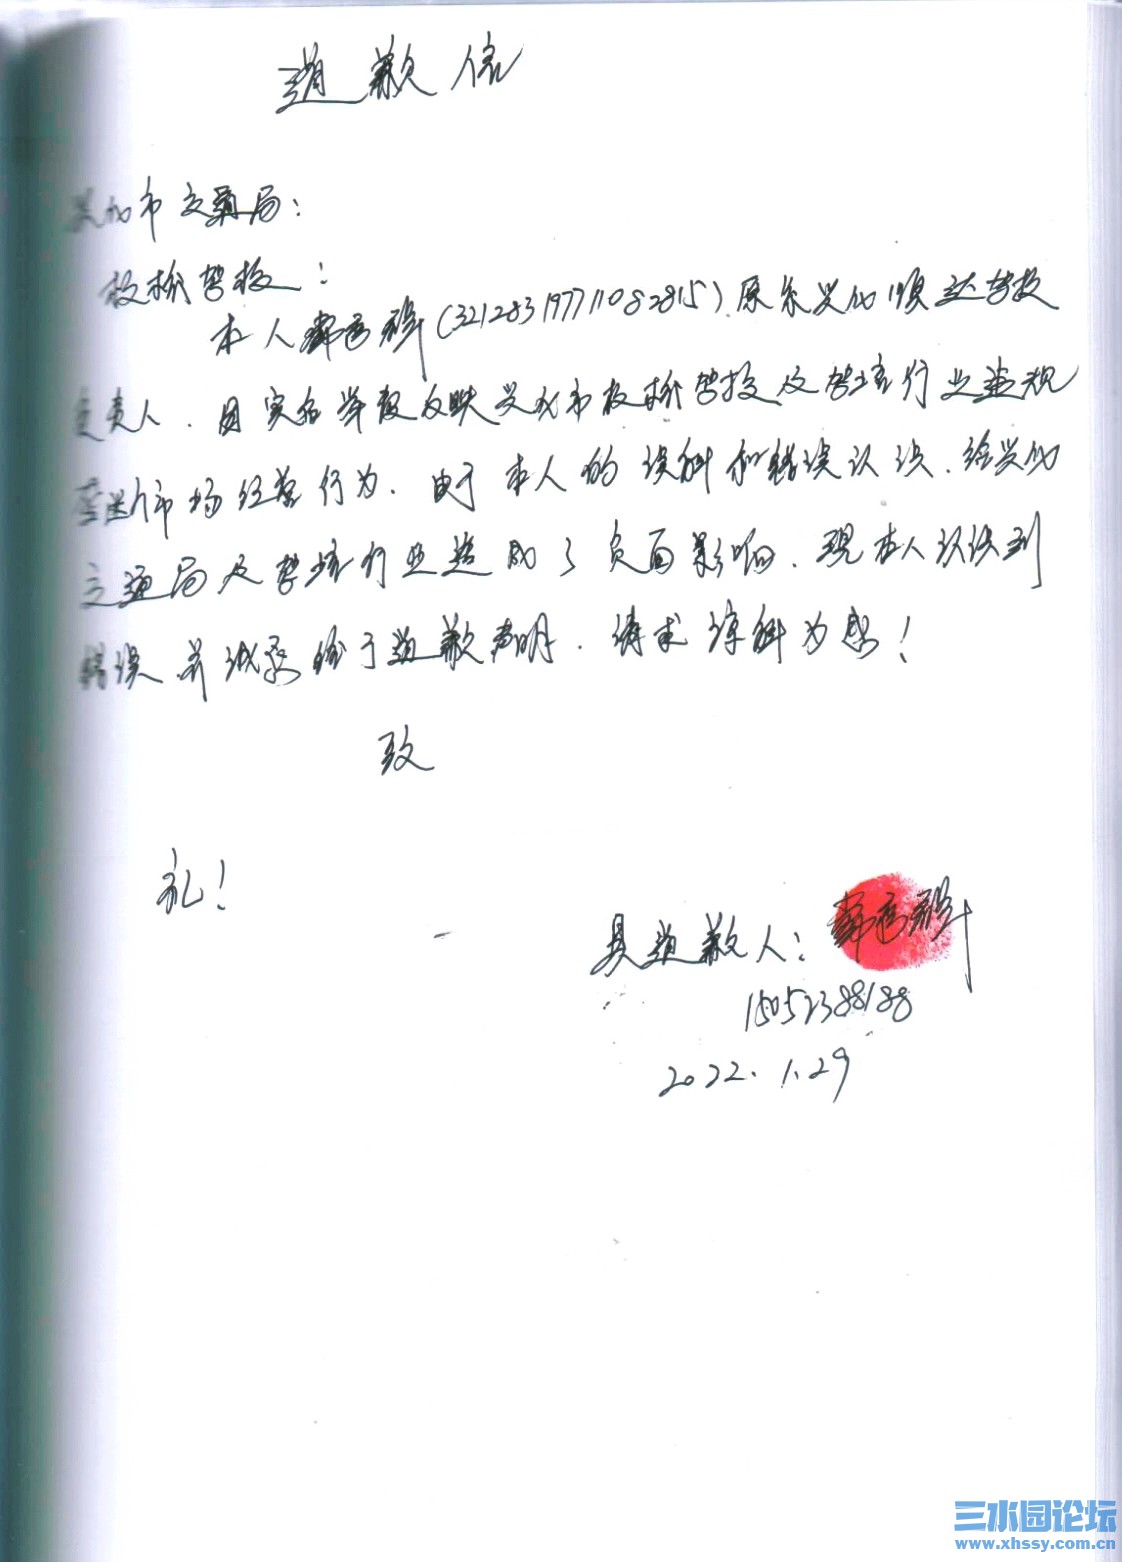 道歉信
兴化市交通局：
板桥驾校：
本人(321283197711082815)原系兴化顺达驾校
负责人．因实名举报反映兴化市板桥驾校及驾培行业违规
市场经营行为．由于本人的误解和错误认识．给兴化
交通局及驾培行业造成了负面影响．现本人认识到
错误．并诚恳给于道歉声明．请求谅解为感！
致
礼！
具道歉人：
15052388188
2022.1.29
三水园论坛
www.xhssy.com.cn